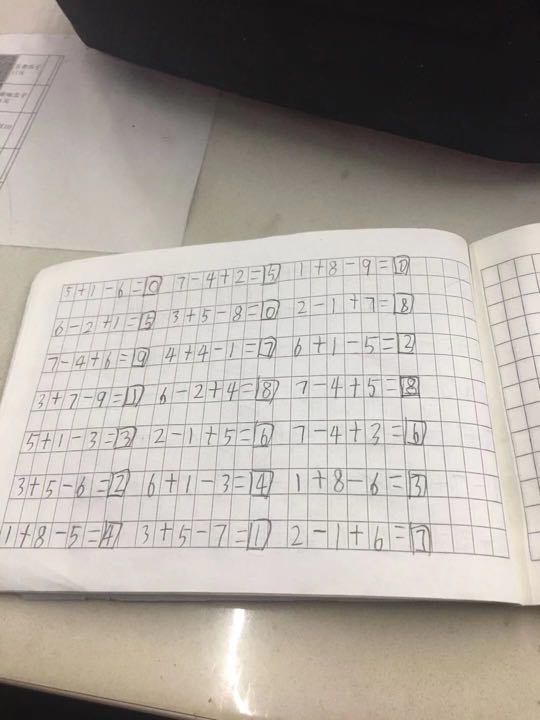 5+1-6=0 7-4+2=5 1+8-9=0
6-2+1=5 3+5-8=0 2-1+7=8
7-4+6=9 4+4-1=7 6+1-5=2
3+7-9=1 6-2+4=8 7-4+5=8
5+1-3=3 2-1+5=6 7-4+3=6
3+5-6=2 6+1-3=4 1+8-6=3
1+8-5=4 3+5-7=1 2-1+6=7